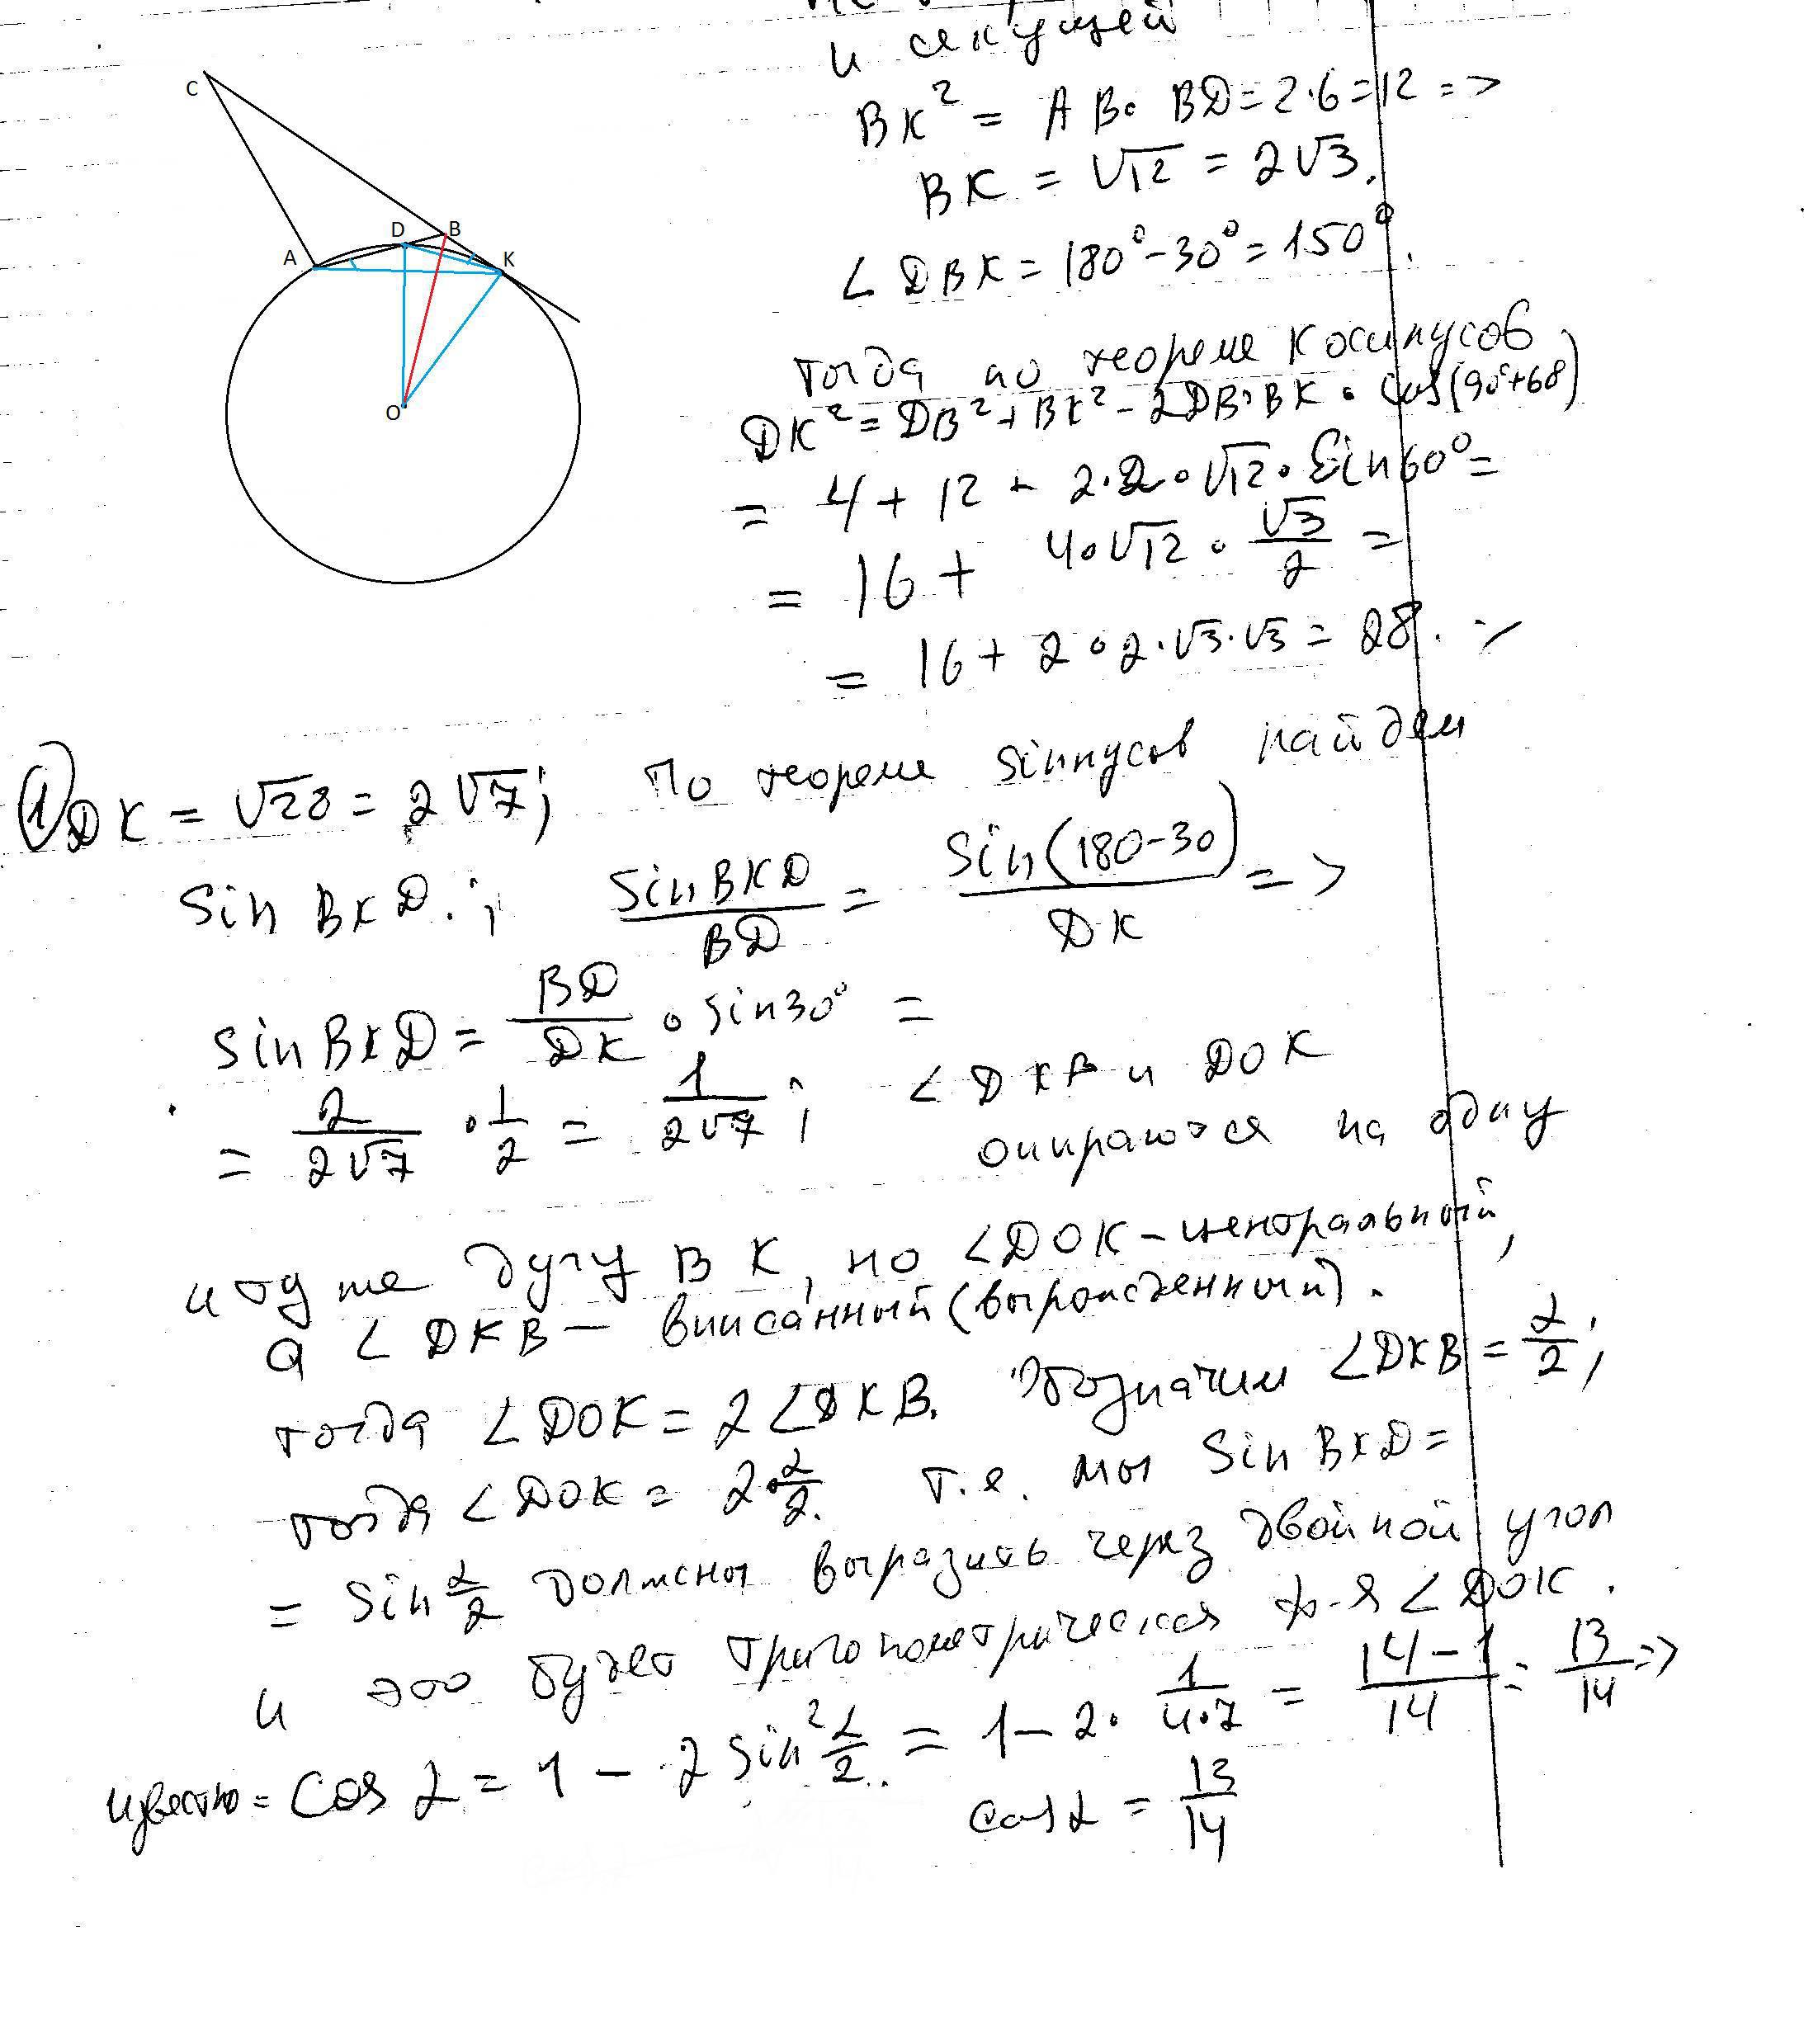 и секущей
BK² = AB·BD = 2·6 = 12 =>
BK = √12 = 2√3.
∠DBK = 180° - 30° = 150°.
C
D B
A K
O
тогда по теореме косинусов
DK² = DB² + BK² - 2DB·BK · cos(90°+60)
= 4 + 12 + 2·2·√12·Sin60° =
= 16 + 4·√12 · √3/2 =
= 16 + 2·2·√3·√3 = 28. =>
① DK = √28 = 2√7; По теореме sinнусов найдем
Sin BKD.; SinBKD/BD = Sin(180-30)/DK =>
sinBKD = BD/DK · sin30° =
= 2/2√7 · 1/2 = 1/2√7; ∠DKB и DOK
опираются на одну
и ту же дугу BK, но ∠DOK - центральный,
а ∠DKB — вписанный (вырожденный).
тогда ∠DOK = 2∠DKB. Обозначим ∠DKB = α/2;
тогда ∠DOK = 2·α/2. т.е. мы Sin BKD =
= Sin α/2 должны выразить через двойной угол
и это будет тригонометрическая ф-я ∠DOK.
известно = Cos α = 1 - 2 sin² α/2 = 1 - 2· 1/4·7 = 14-1/14 = 13/14 =>
cos α = 13/14